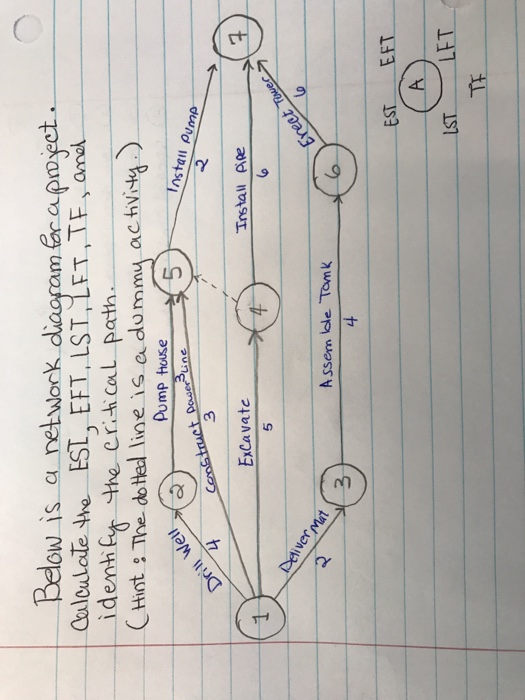 Below is a network diagram for a project.
Calculate the EST, EFT, LST, LFT, TF, and
identify the critical path.
(Hint: The dotted line is a dummy activity.)
Drill Well
4
2
Pump House
3
Construct Power Line
3
5
Install Pump
2
1
Excavate
5
4
Install Pipe
6
7
Deliver Mat
2
3
Assemble Tank
4
6
Erect Tower
6
EST EFT
A
LST LFT
TF